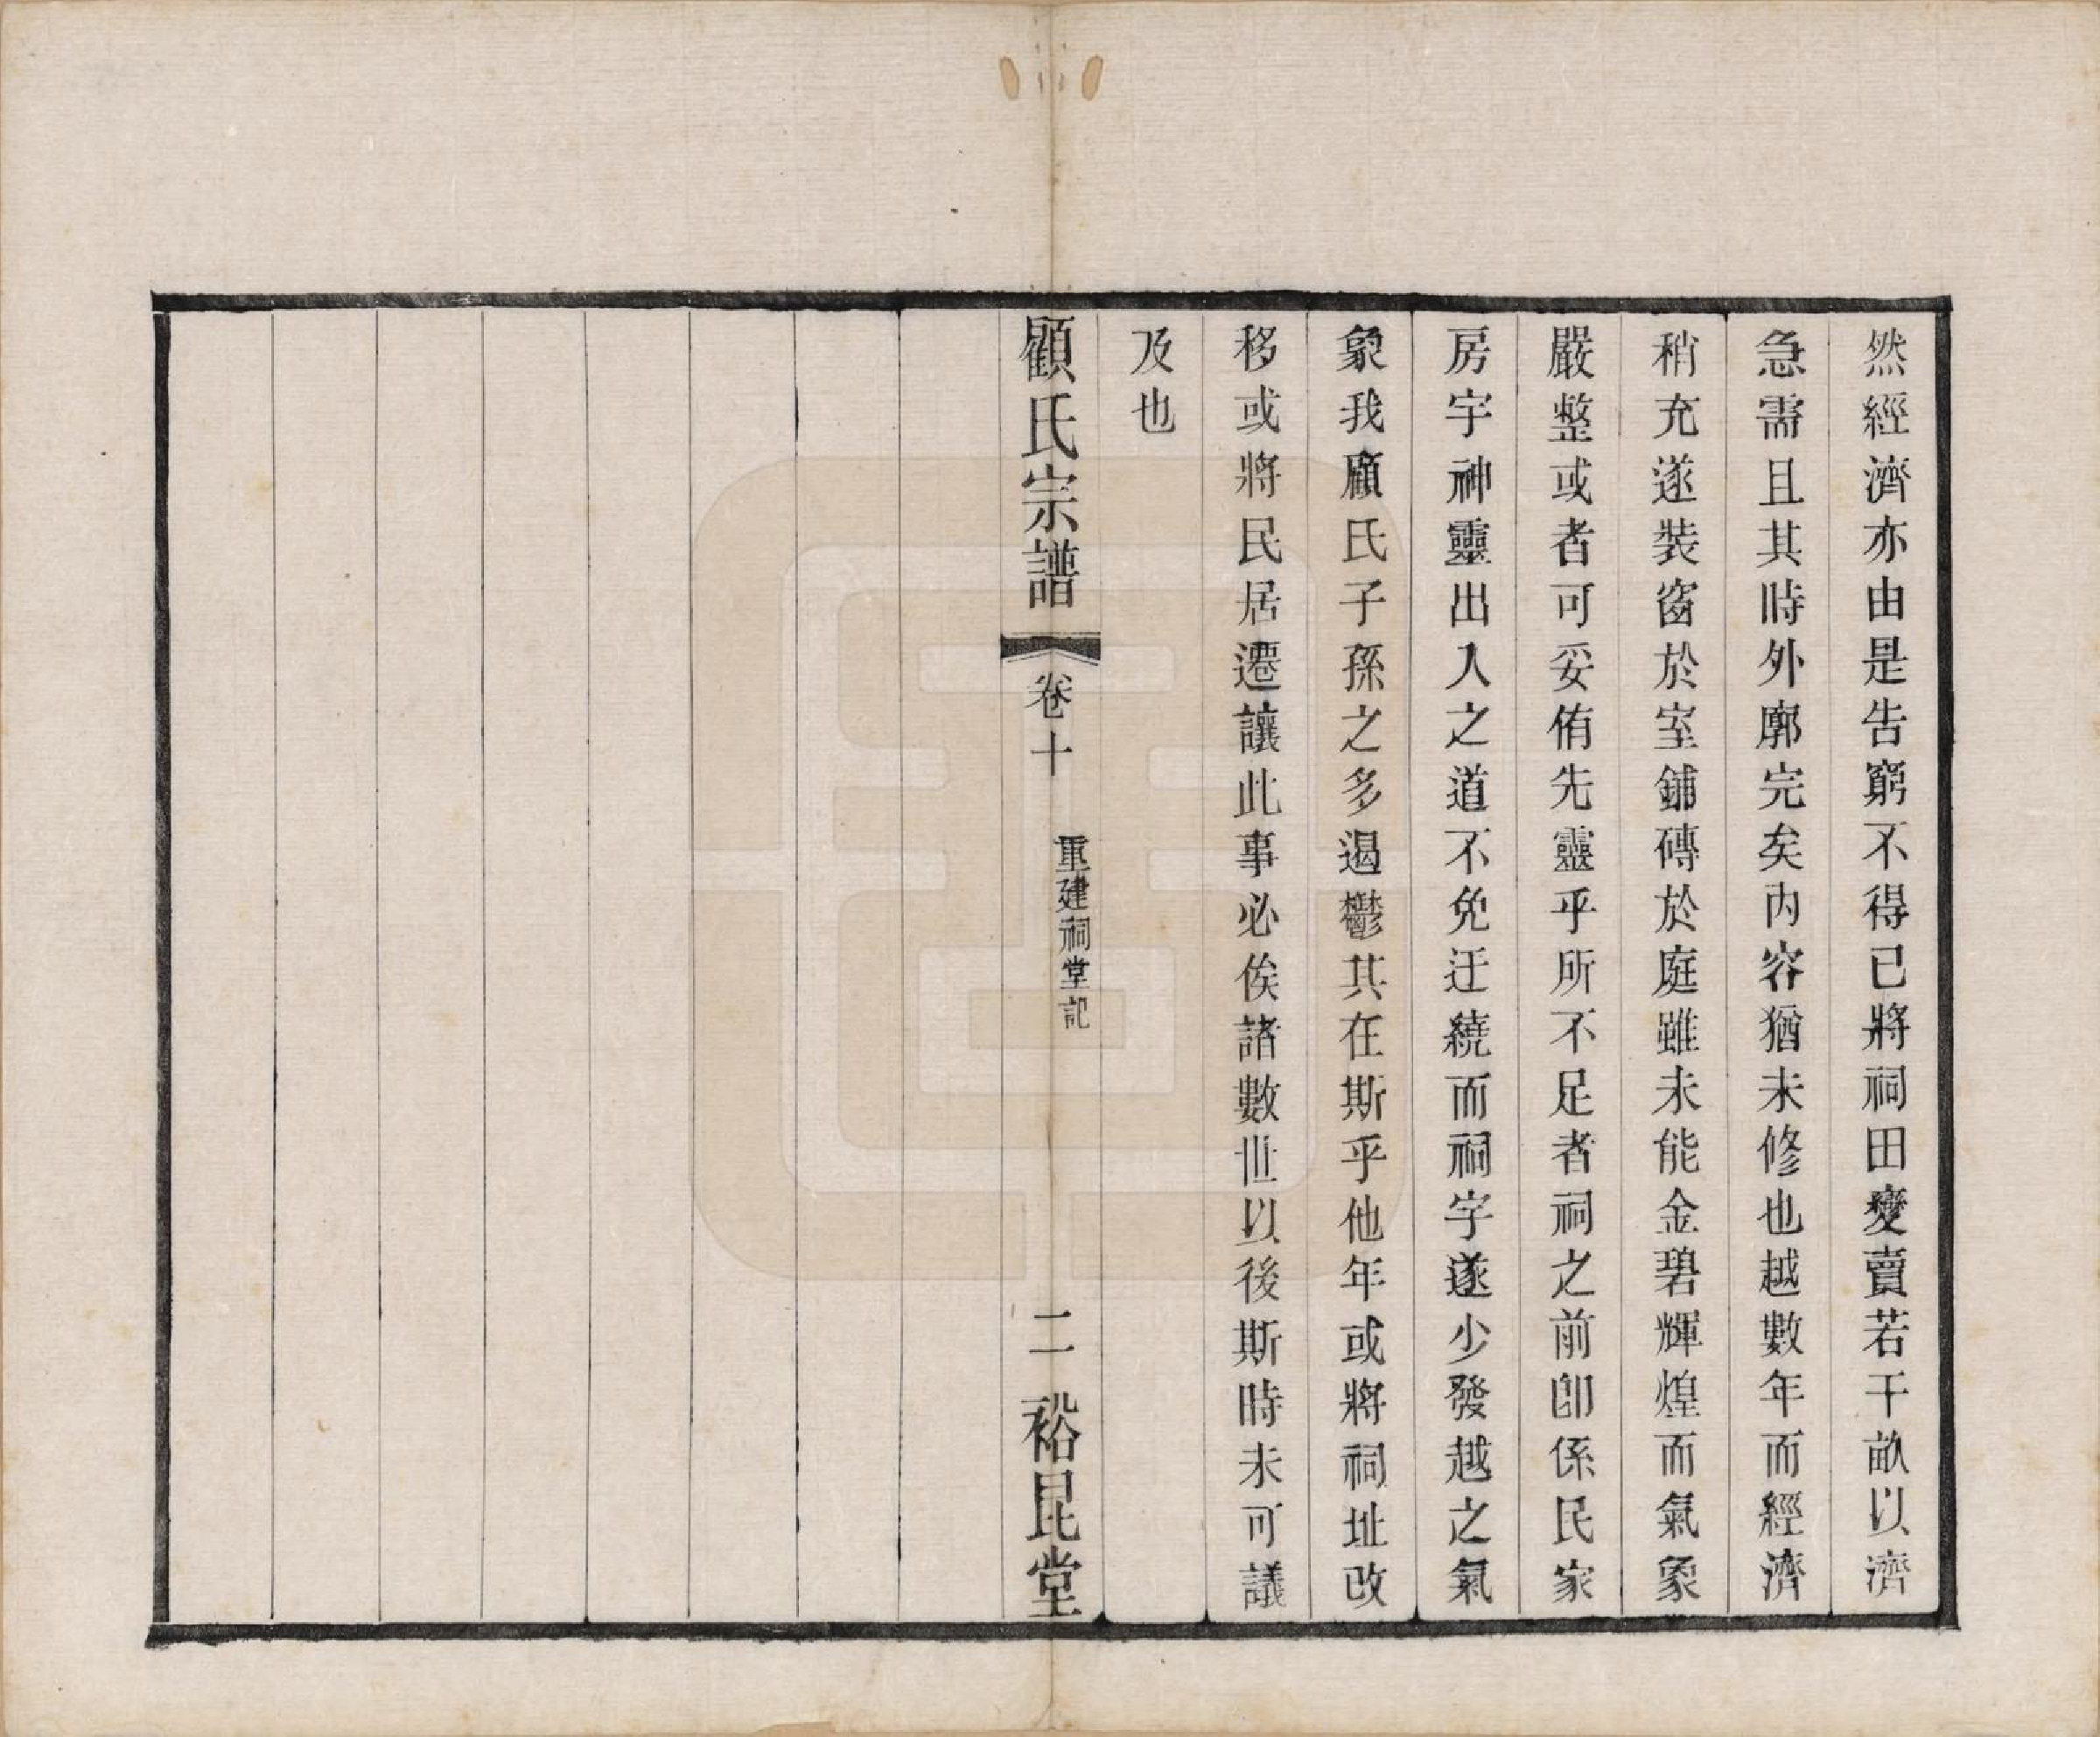 然經濟亦由是告窮不得已將祠田變賣若干畝以濟
急需且其時外廓完矣內容猶未修也越數年而經濟
稍充遂裝窗於室鋪磚於庭雖未能金碧輝煌而氣象
嚴整或者可妥侑先靈乎所不足者祠之前卽係民家
房宇神靈出入之道不免迂繞而祠字遂少發越之氣
象我顧氏子孫之多遏鬱其在斯乎他年或將祠址改
移或將民居遷讓此事必俟諸數世以後斯時未可議
及也
顧氏宗譜 卷十 重建祠堂記 二 裕昆堂